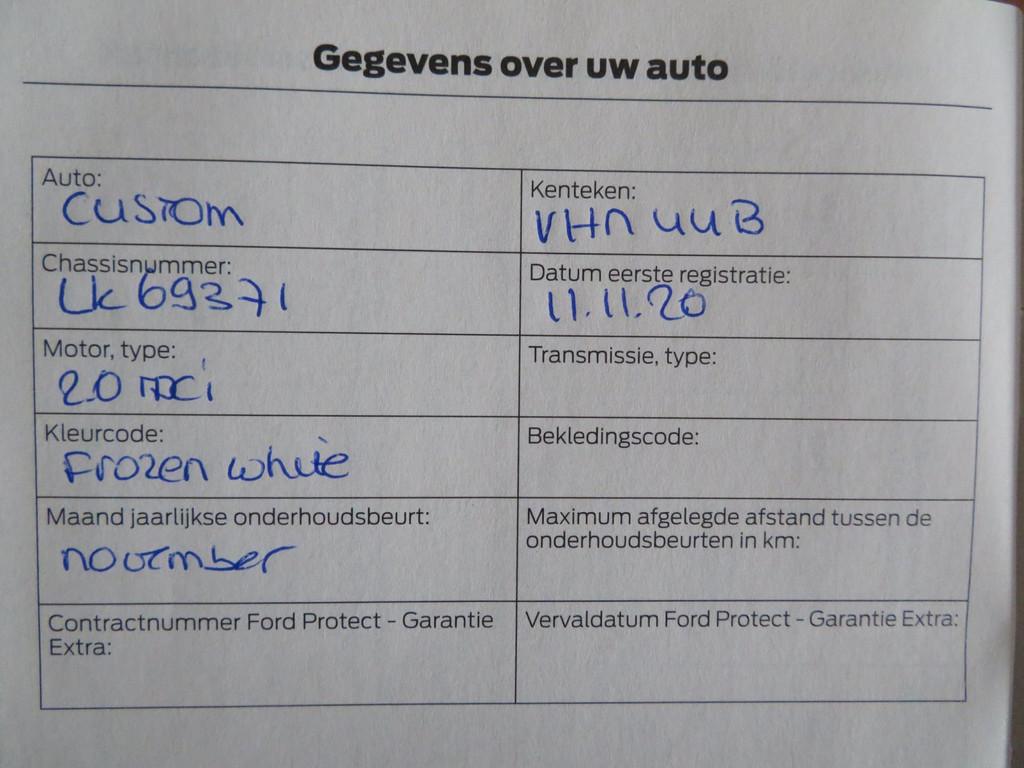 Gegevens over uw auto
Auto:
Custom
Kenteken:
VHN 44 B
Chassisnummer:
LK 69371
Datum eerste registratie:
11.11.20
Motor, type:
2.0 TDCi
Transmissie, type:
Kleurcode:
Frozen white
Bekledingscode:
Maand jaarlijkse onderhoudsbeurt:
november
Maximum afgelegde afstand tussen de
onderhoudsbeurten in km:
Contractnummer Ford Protect - Garantie
Extra:
Vervaldatum Ford Protect - Garantie Extra: